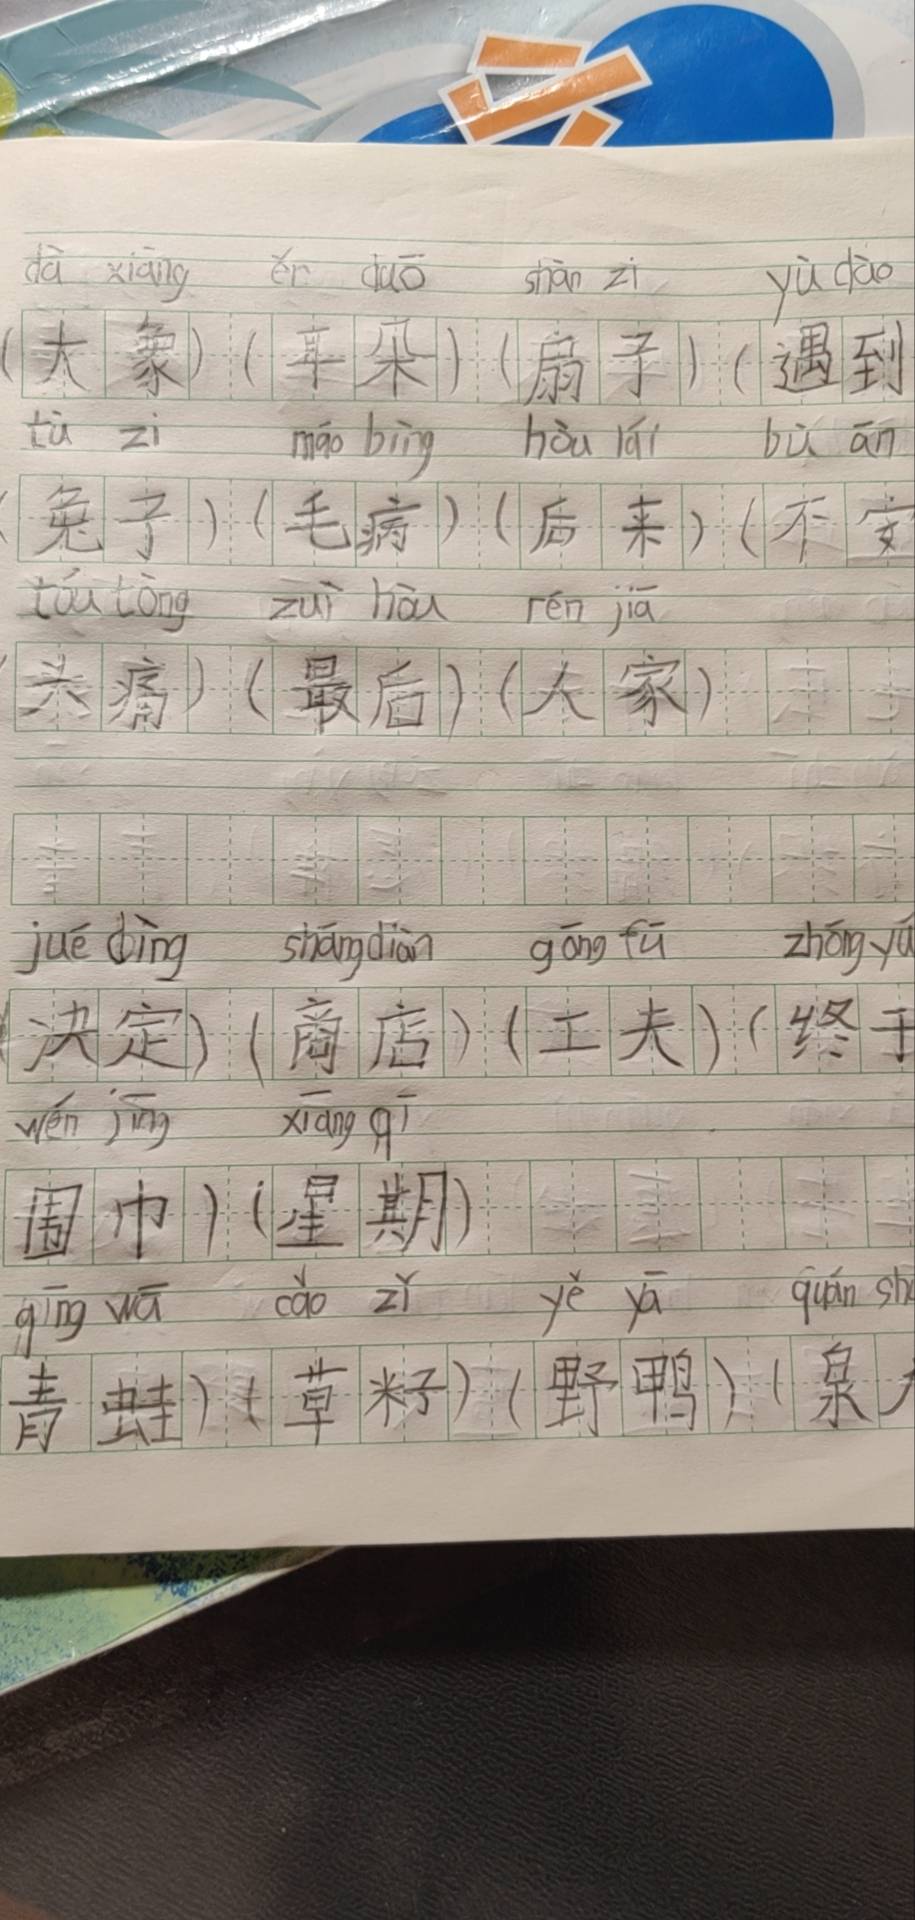 dà xiàng ěr duō shàn zi yù dào
(大象)(耳朵)(扇子)(遇到
tù zi máo bìng hòu lái bù ān
(兔子)(毛病)(后来)(不安
tóu tòng zuì hòu rén jiā
(头痛)(最后)(人家)
jué dìng shāng diàn gōng fū zhōng yú
(决定)(商店)(工夫)(终于
wén jīng xīang qī
围巾)(星期)
qīng wā cǎo zǐ yě yā quán shu
青蛙)(草籽)(野鸭)(泉